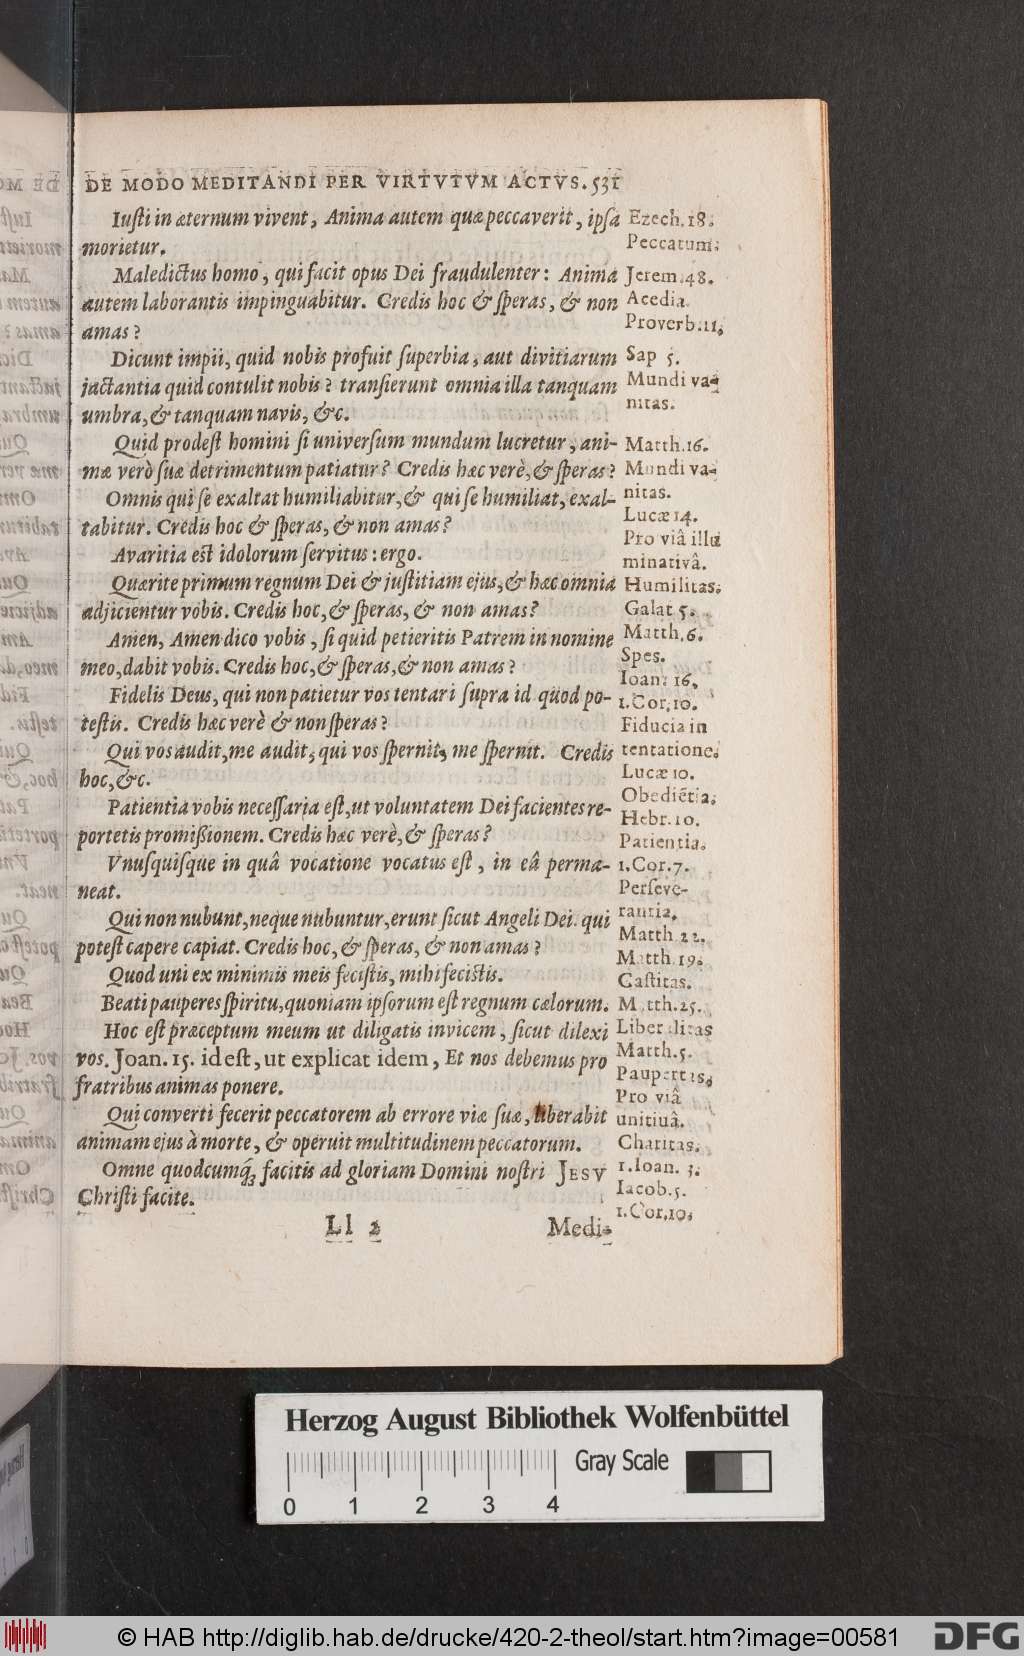 DE MODO MEDITANDI PER VIRTVTVM ACTVS. 531
Iusti in æternum vivent, Anima autem quæ peccaverit, ipsa
morietur.
Maledictus homo, qui facit opus Dei fraudulenter: Anima
autem laborantis impinguabitur. Credis hoc & speras, & non
amas?
Dicunt impii, quid nobis profuit superbia, aut divitiarum
jactantia quid contulit nobis? transierunt omnia illa tanquam
umbra, & tanquam navis, &c.
Quid prodest homini si universum mundum lucretur, ani-
mæ verò suæ detrimentum patiatur? Credis hæc verè, & speras?
Omnis qui se exaltat humiliabitur, & qui se humiliat, exal-
tabitur. Credis hoc & speras, & non amas?
Avaritia est idolorum servitus: ergo.
Quærite primum regnum Dei & justitiam ejus, & hæc omnia
adjicientur vobis. Credis hoc, & speras, & non amas?
Amen, Amen dico vobis, si quid petieritis Patrem in nomine
meo, dabit vobis. Credis hoc, & speras, & non amas?
Fidelis Deus, qui non patietur vos tentari supra id quod po-
testis. Credis hæc verè & non speras?
Qui vos audit, me audit, qui vos spernit, me spernit. Credis
hoc, &c.
Patientia vobis necessaria est, ut voluntatem Dei facientes re-
portetis promißionem. Credis hæc verè, & speras?
Vnusquisque in quâ vocatione vocatus est, in eâ perma-
neat.
Qui non nubunt, neque nubuntur, erunt sicut Angeli Dei. qui
potest capere capiat. Credis hoc, & speras, & non amas?
Quod uni ex minimis meis fecistis, mihi fecistis.
Beati pauperes spiritu, quoniam ipsorum est regnum cælorum.
Hoc est præceptum meum ut diligatis invicem, sicut dilexi
vos. Joan. 15. id est, ut explicat idem, Et nos debemus pro
fratribus animas ponere.
Qui converti fecerit peccatorem ab errore viæ suæ, liberabit
animam ejus à morte, & operuit multitudinem peccatorum.
Omne quodcumq; facitis ad gloriam Domini nostri JESV
Christi facite.
Ll 2 Medi-
Ezech. 18.
Peccatum.
Jerem. 48.
Acedia.
Proverb. 11.
Sap 5.
Mundi va-
nitas.
Matth. 16.
Mundi va-
nitas.
Lucæ 14.
Pro viâ illu
minativâ.
Humilitas.
Galat 5.
Matth. 6.
Spes.
Ioan: 16.
1. Cor. 10.
Fiducia in
tentatione.
Lucæ 10.
Obediẽtia.
Hebr. 10.
Patientia.
1. Cor. 7.
Perseve-
rantia.
Matth 22.
Matth. 19.
Castitas.
Matth. 25.
Liberalitas
Matth. 5.
Paupertas.
Pro viâ
unitivâ.
Charitas.
1. Ioan. 3.
Iacob. 5.
1. Cor. 10.
Herzog August Bibliothek Wolfenbüttel
Gray Scale
0 1 2 3 4
© HAB http://diglib.hab.de/drucke/420-2-theol/start.htm?image=00581
DFG